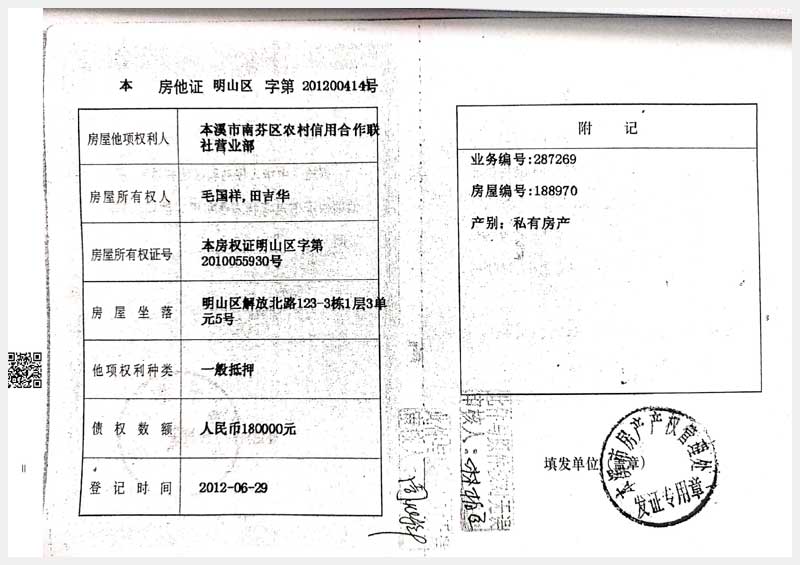 本 房他证 明山区 字第 201200414号
房屋他项权利人
本溪市南芬区农村信用合作联
社营业部
房屋所有权人
毛国祥,田吉华
房屋所有权证号
本房权证明山区字第
2010055930号
房屋坐落
明山区解放北路123-3栋1层3单
元5号
他项权利种类
一般抵押
债权数额
人民币180000元
登记时间
2012-06-29
附记
业务编号:287269
房屋编号:188970
产别: 私有房产
审核人:
填发单位(盖章)
本溪市房产产权管理处
发证专用章